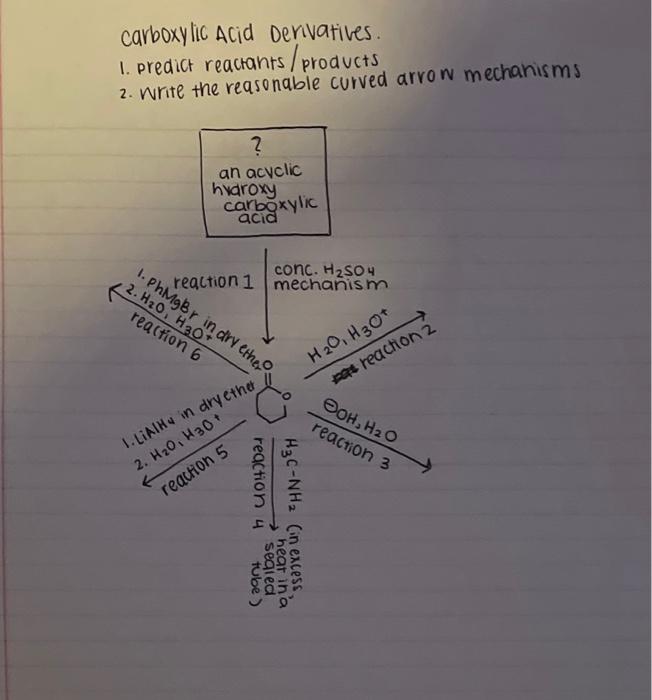 Carboxylic Acid Derivatives.
1. predict reactants/products
2. Write the reasonable curved arrow mechanisms
?
an acyclic
hydroxy
carboxylic
acid
reaction 1
conc. H2SO4
mechanism
1. PhMgBr in dry ether
2. H2O, H3O+
reaction 6
H2O, H3O+
reaction 2
O
O
1. LiAlH4 in dry ether
2. H2O, H3O+
reaction 5
⊖OH, H2O
reaction 3
H3C-NH2 (in excess,
heat in a
sealed
tube)
reaction 4